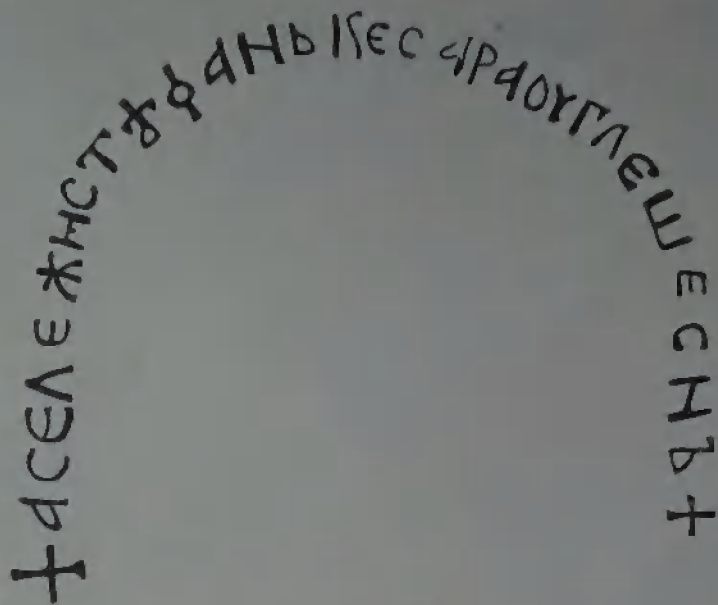 + АСЕЛЕЖИСТꙊФАНЬКЕСАРАОУГЛЕШЕСНЬ +